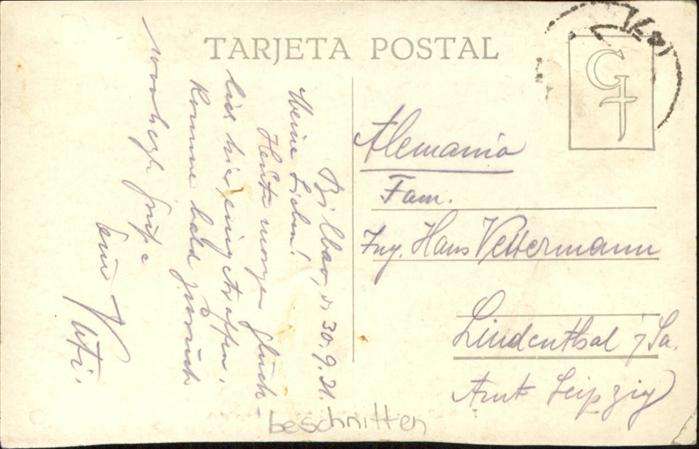 TARJETA POSTAL
Bilbao, d. 30.9.21.
Meine Lieben!
Heute morgen glück-
lich hier eingetroffen.
Komme bald zurück
Grüße
Vati.
Alemania
Fam.
Ing. Hans Vettermann
Lindenthal i/Sa.
Amt Leipzig
beschnitten